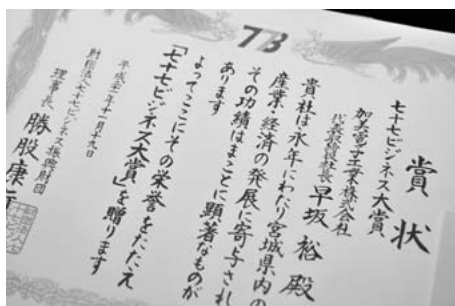 77B
賞状
七十七ビジネス大賞
加美電子工業株式会社
代表取締役社長 早坂 裕 殿
貴社は永年にわたり宮城県内の
産業・経済の発展に寄与され
その功績はまことに顕著なものが
あります
よってここにその栄誉をたたえ
「七十七ビジネス大賞」を贈ります
平成 年十一月十九日
財団法人七十七ビジネス振興財団
理事長 勝股康